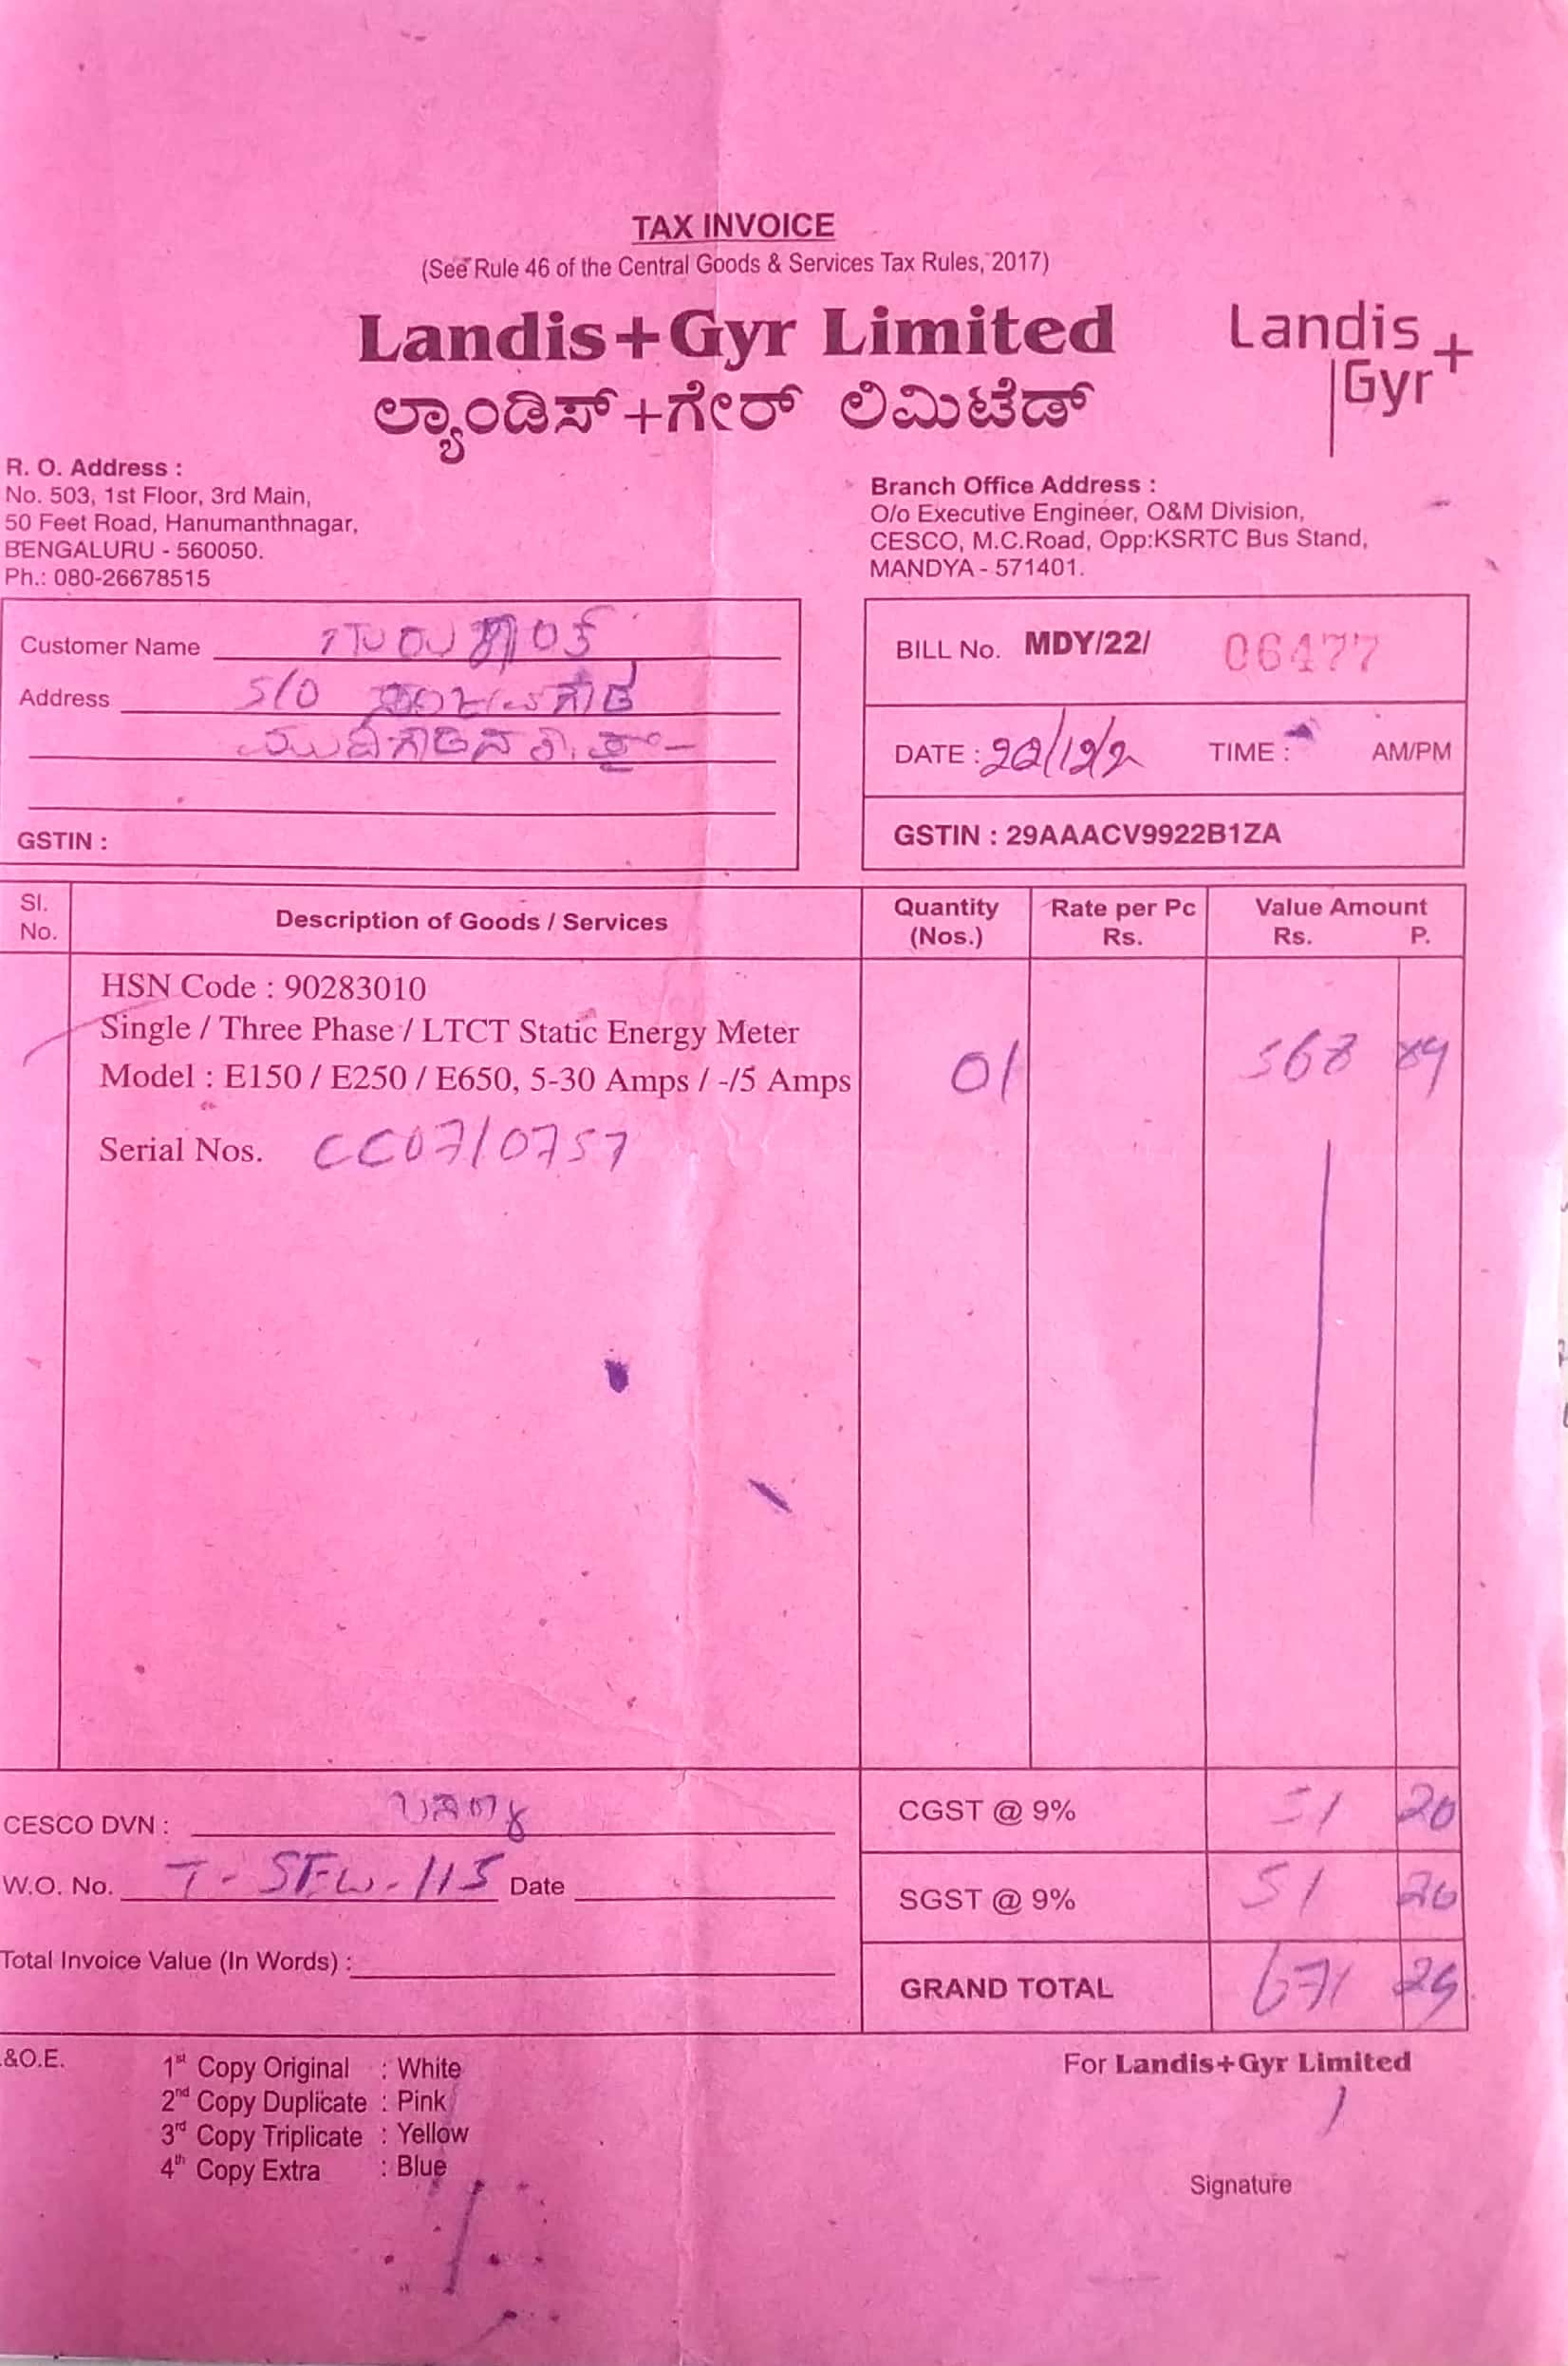 TAX INVOICE
(See Rule 46 of the Central Goods & Services Tax Rules, 2017)
Landis+Gyr Limited
ಲ್ಯಾಂಡಿಸ್+ಗೇರ್ ಲಿಮಿಟೆಡ್
Landis
Gyr+
R. O. Address :
No. 503, 1st Floor, 3rd Main,
50 Feet Road, Hanumanthnagar,
BENGALURU - 560050.
Ph.: 080-26678515
Branch Office Address :
O/o Executive Engineer, O&M Division,
CESCO, M.C.Road, Opp:KSRTC Bus Stand,
MANDYA - 571401.
Customer Name
Address S/O
GSTIN :
BILL No. MDY/22/ 06477
DATE : 22/12/2 TIME : AM/PM
GSTIN : 29AAACV9922B1ZA
Sl. No. Description of Goods / Services Quantity (Nos.) Rate per Pc Rs. Value Amount Rs. P.
HSN Code : 90283010
Single / Three Phase / LTCT Static Energy Meter
Model : E150 / E250 / E650, 5-30 Amps / -/5 Amps 01 568 89
Serial Nos. CC0710757
CESCO DVN :
W.O. No. Date
Total Invoice Value (In Words) :
CGST @ 9% 51 20
SGST @ 9% 51 20
GRAND TOTAL 671 29
&O.E.
1st Copy Original : White
2nd Copy Duplicate : Pink
3rd Copy Triplicate : Yellow
4th Copy Extra : Blue
For Landis+Gyr Limited
Signature